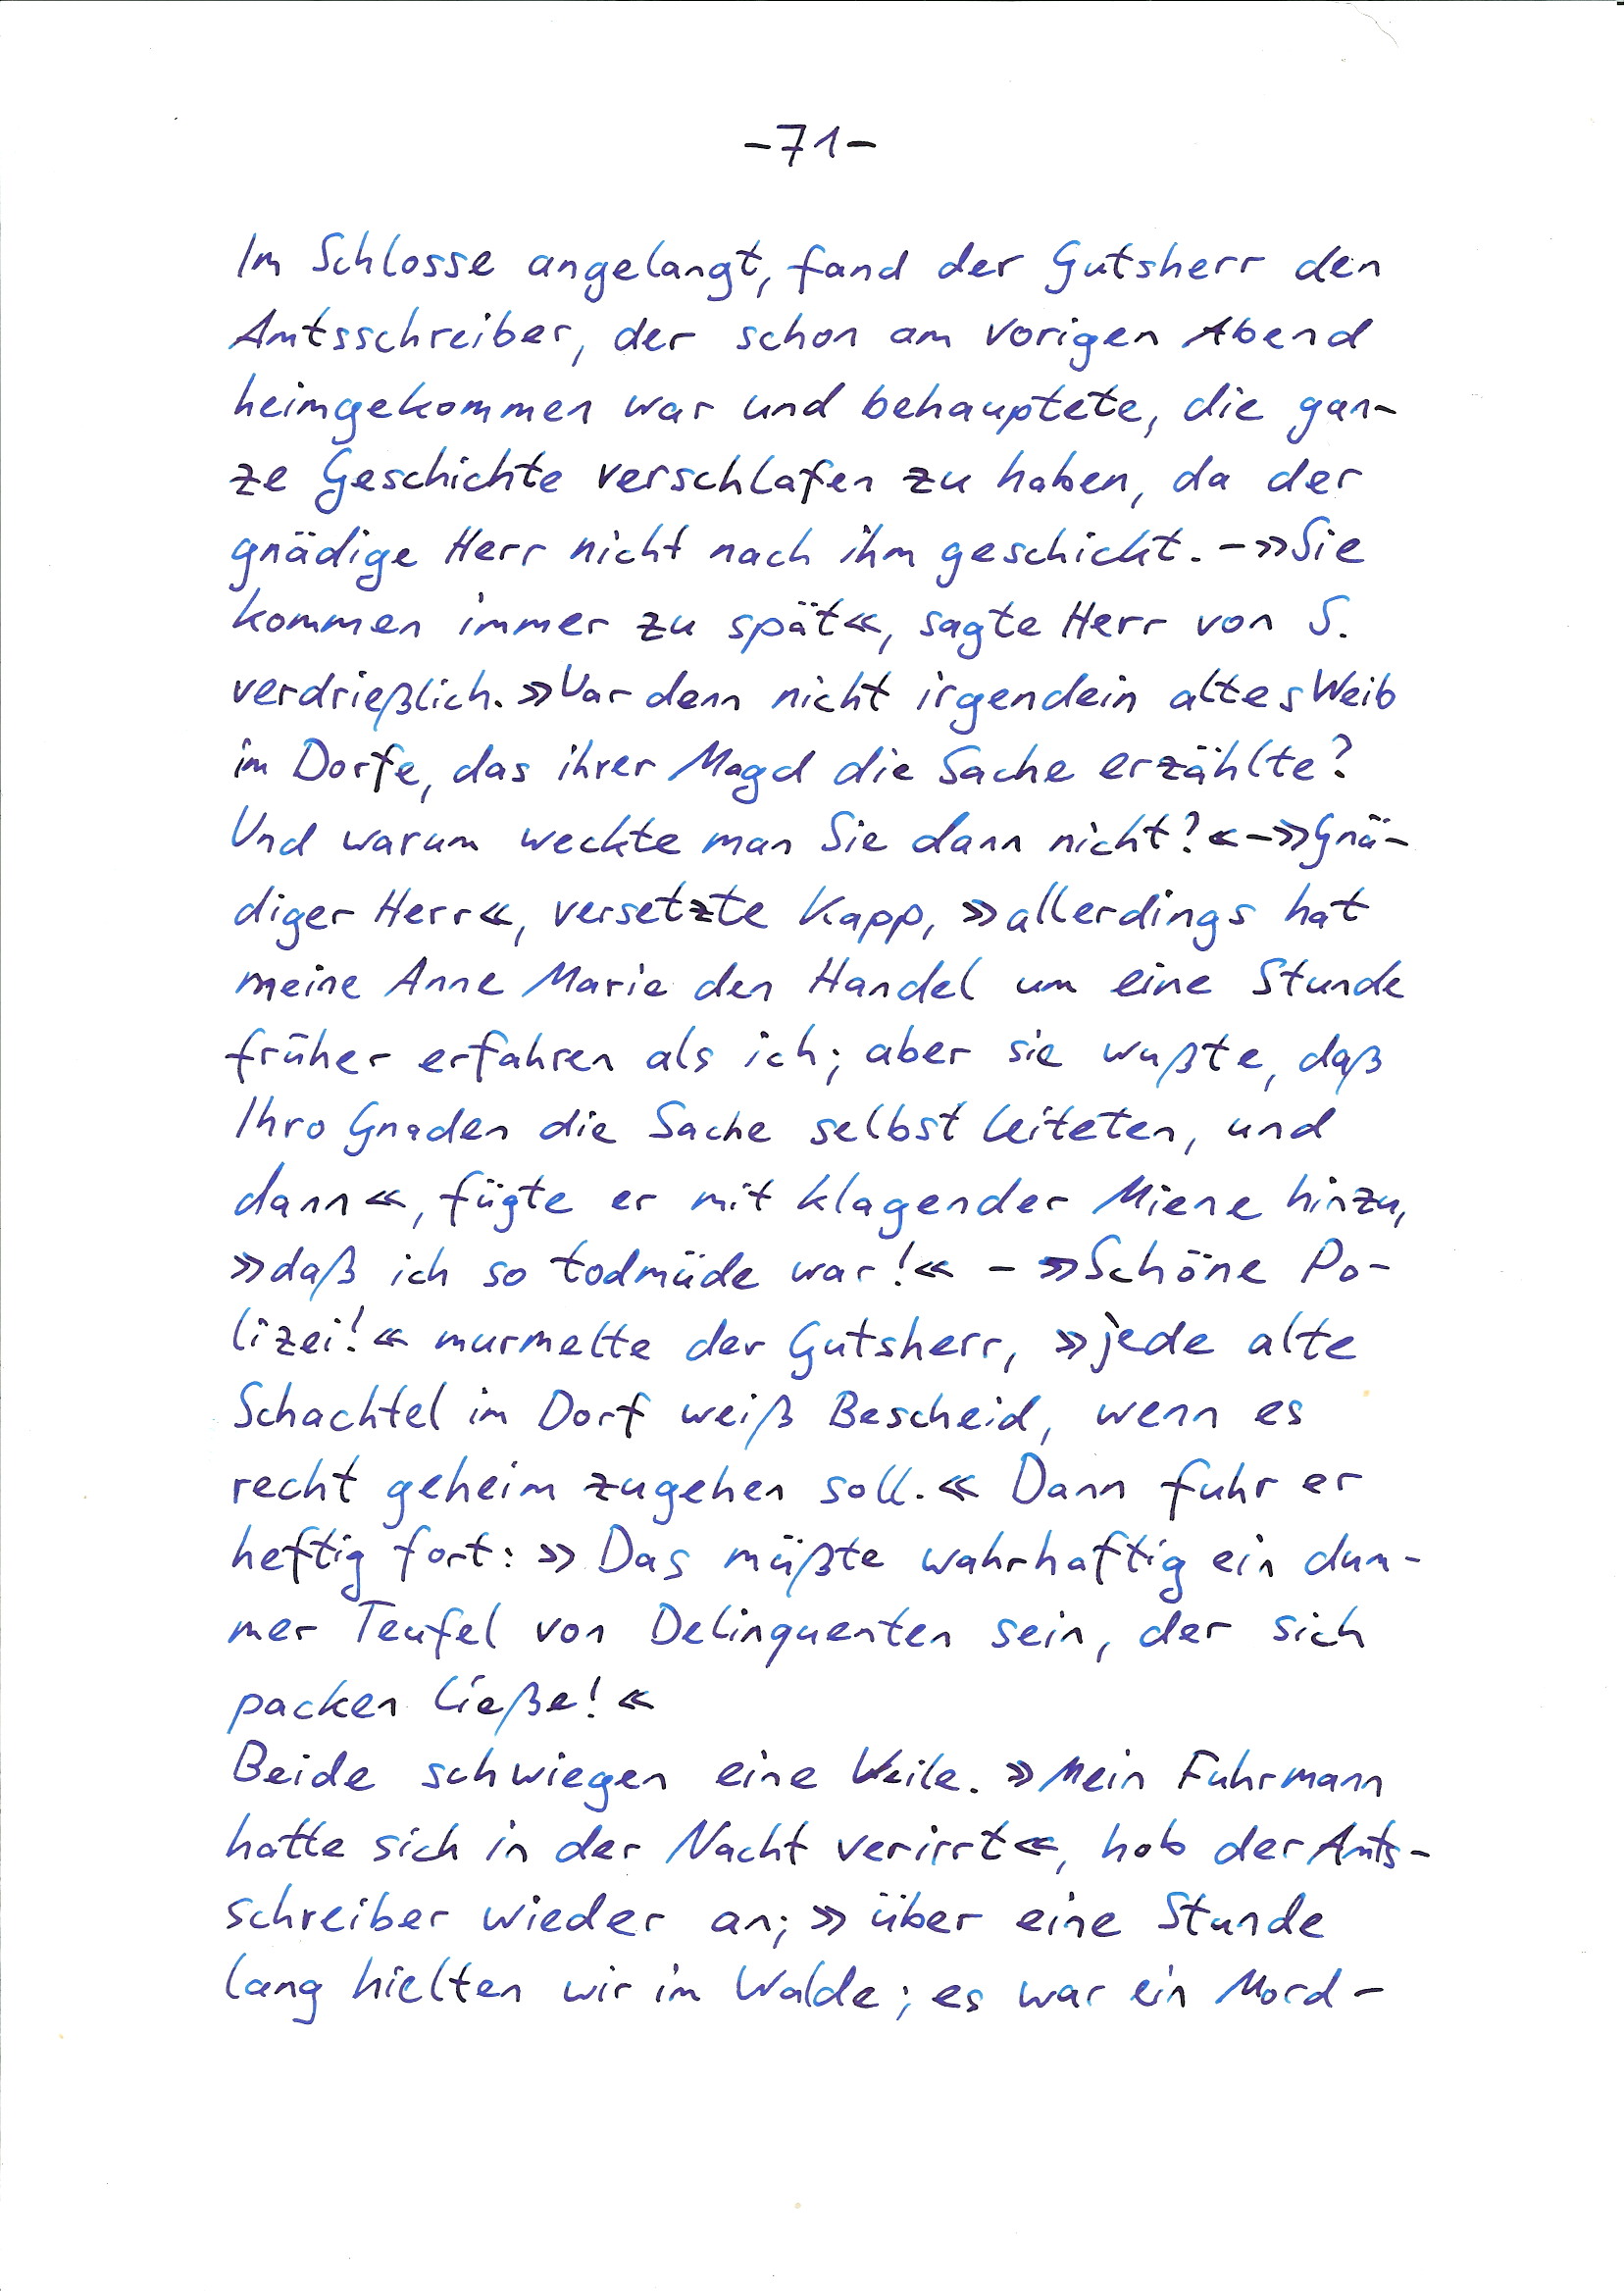 -71-
Im Schlosse angelangt, fand der Gutsherr den
Amtsschreiber, der schon am vorigen Abend
heimgekommen war und behauptete, die gan-
ze Geschichte verschlafen zu haben, da der
gnädige Herr nicht nach ihm geschickt. – »Sie
kommen immer zu spät«, sagte Herr von S.
verdrießlich. »War denn nicht irgendein altes Weib
im Dorfe, das ihrer Magd die Sache erzählte?
Und warum weckte man Sie dann nicht?« – »Gnä-
diger Herr«, versetzte Kapp, »allerdings hat
meine Anne Marie den Handel um eine Stunde
früher erfahren als ich; aber sie wußte, daß
Ihro Gnaden die Sache selbst leiteten, und
dann«, fügte er mit klagender Miene hinzu,
»daß ich so todmüde war!« – »Schöne Po-
lizei!« murmelte der Gutsherr, »jede alte
Schachtel im Dorf weiß Bescheid, wenn es
recht geheim zugehen soll.« Dann fuhr er
heftig fort: »Das müßte wahrhaftig ein dum-
mer Teufel von Delinquenten sein, der sich
packen ließe!«
Beide schwiegen eine Weile. »Mein Fuhrmann
hatte sich in der Nacht verirrt«, hob der Amts-
schreiber wieder an; »über eine Stunde
lang hielten wir im Walde; es war ein Mord-